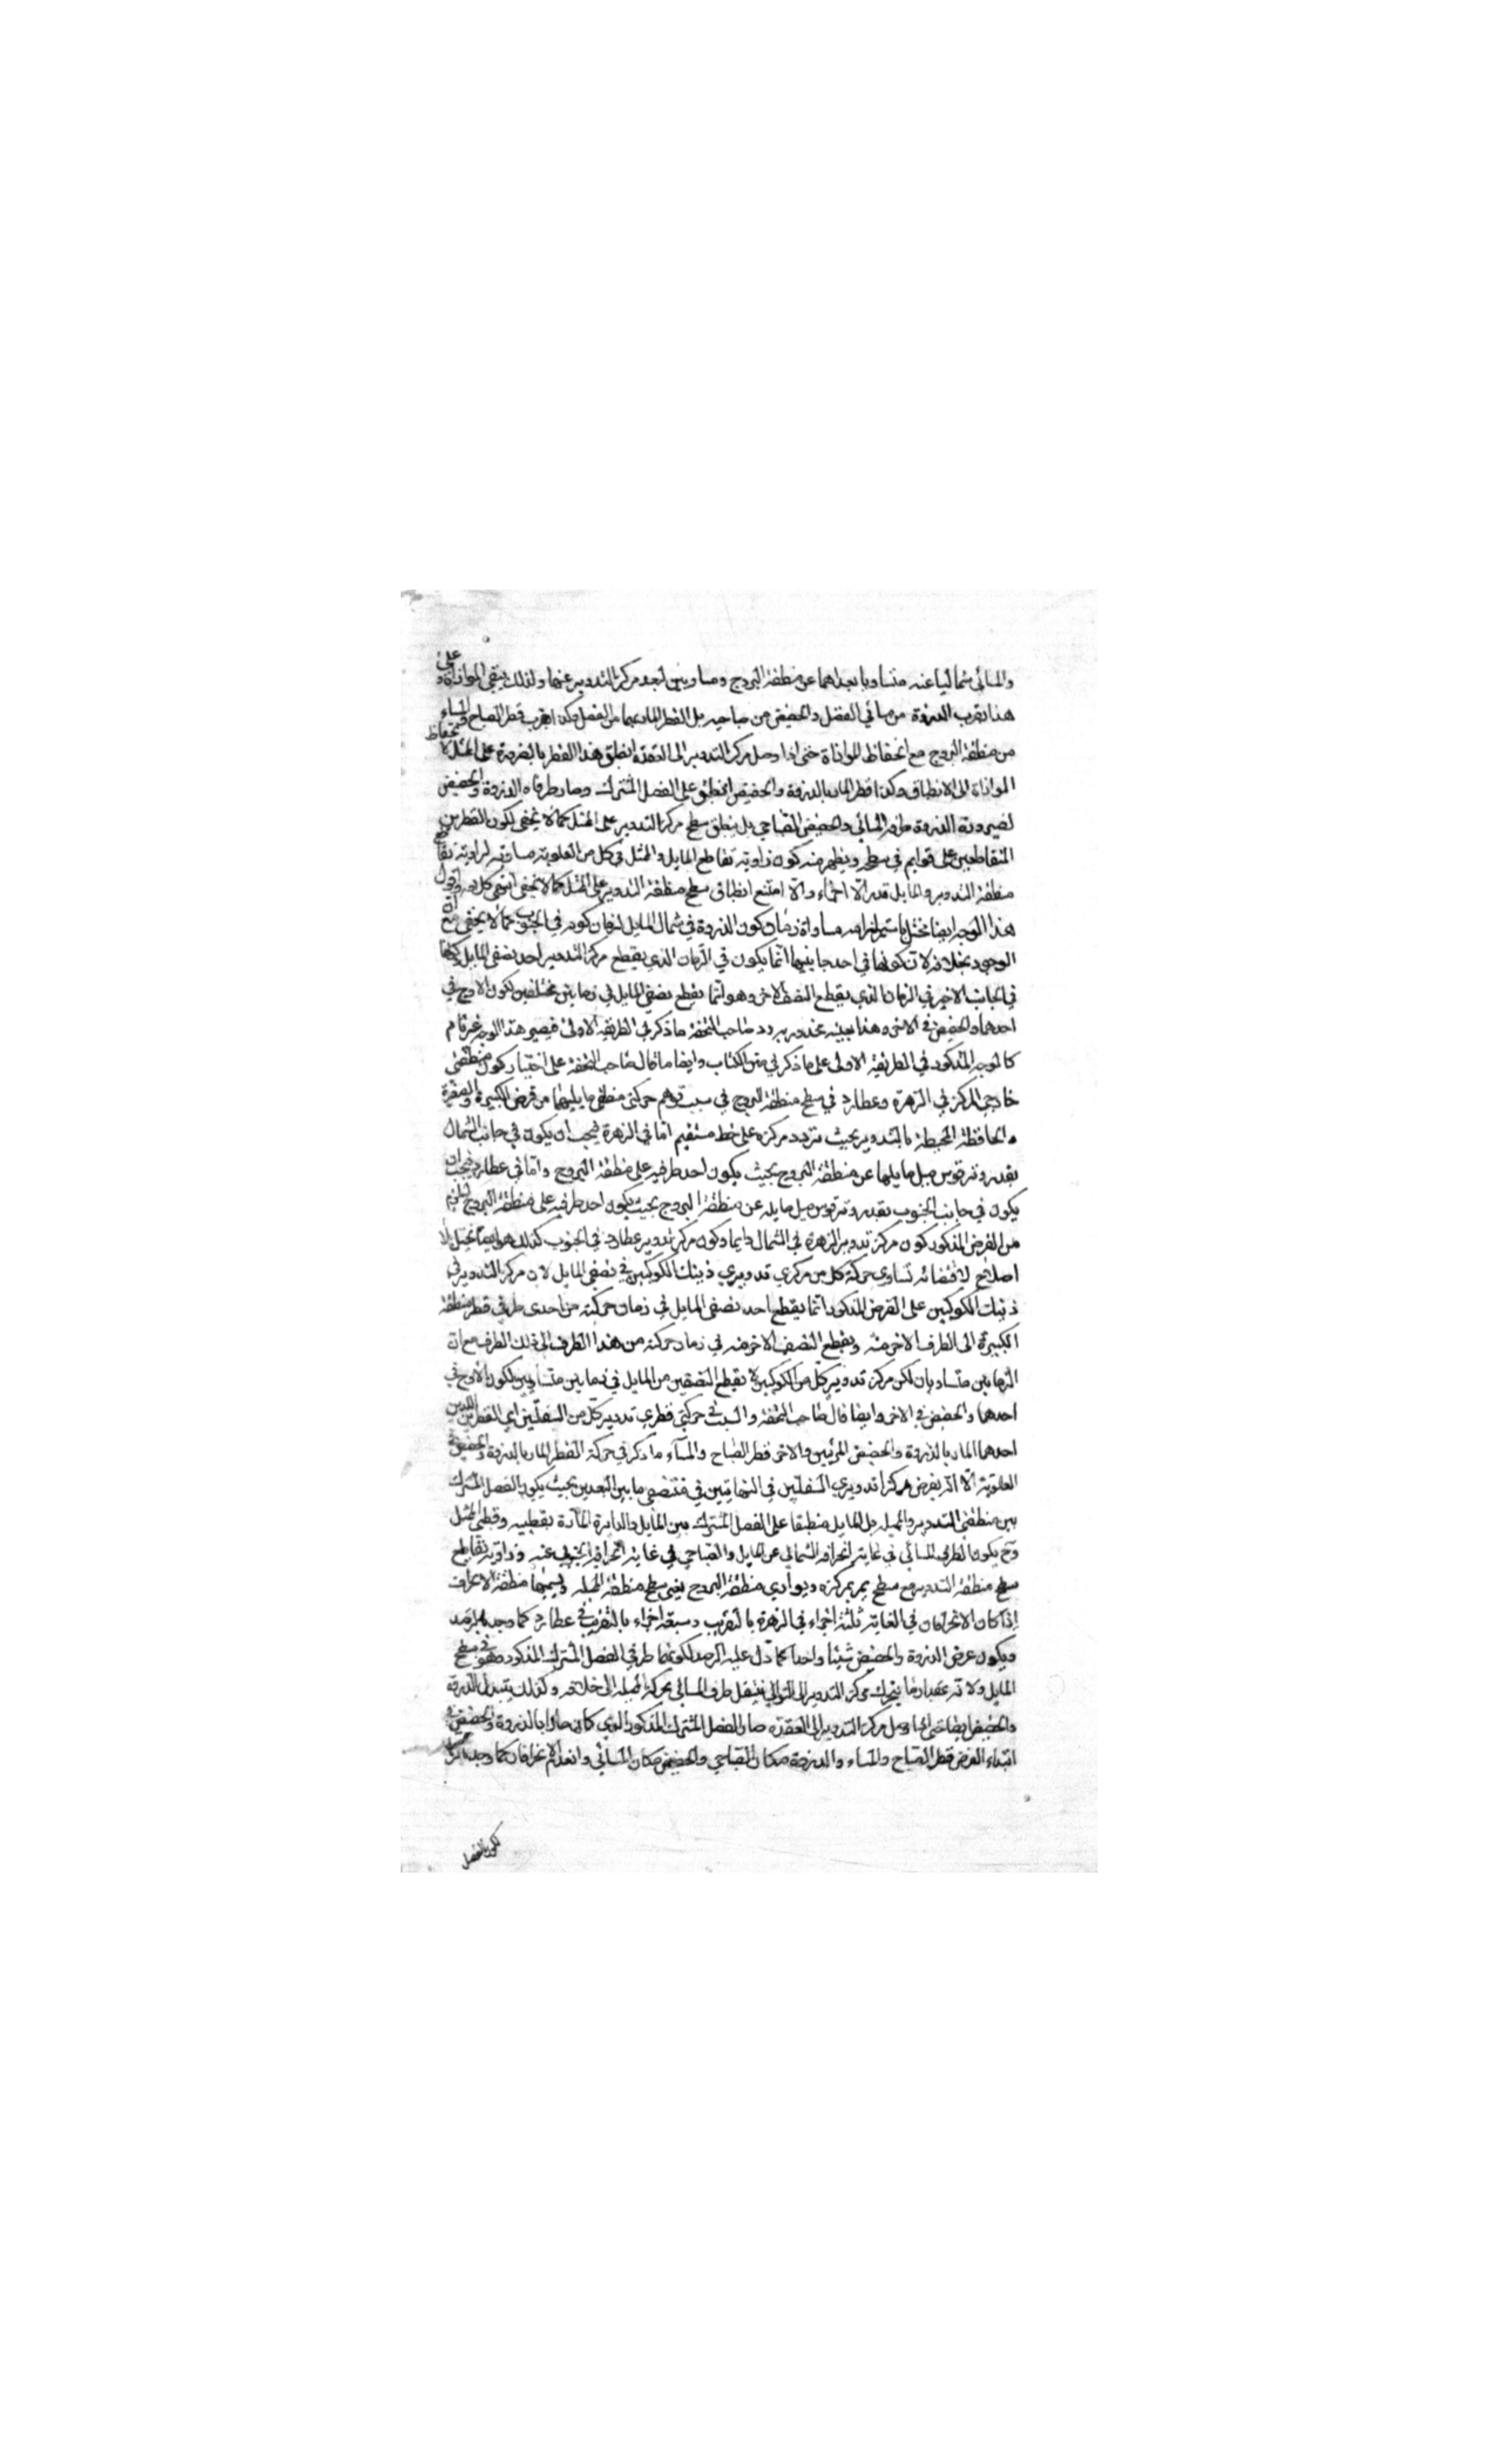 والمسائي شماليا عنه متساويا بعداهما عن منطقة البروج ومساويين لبعد مركز التدوير عنها ولذلك يبقى الموازاة وعلى
هذا تقرب الذروة من مسافي الفصل والحضيض من صباحيه بل القطر المار بهما من الفصل وكذا يقرب قطر الصباح والمساء
من منطقة البروج مع انحفاظ الموازاة حتى اذا وصل مركز التدوير الى العقدة انطبق هذا القطر بالضرورة على الممثل لانحفاظ
الموازاة الى الانطباق وكذا قطر المار بالذروة والحضيض انطبق على الفصل المشترك وصار طرفاه الذروة والحضيض
لصيرورة الذروة طرفه المسائي والحضيض الصباحي بل ينطبق سطح مركز التدوير على الممثل كما لا يخفى لكون القطرين
المتقاطعين على قوايم في سطحه ويظهر منه كون زاوية تقاطع المايل والممثل في كل من العلوية مساوية لزاوية تقاطع
منطقة التدوير والمايل قدرا لا احياء والا امتنع انطباق سطح منطقة التدوير على الممثل كما لا يخفى انتهى كلامه واقول
هذا الوجه ايضا مختل باستلزامه مساواة زمان كون الذروة في شمال المايل لزمان كونه في الجنوب كما لا يخفى مع ان
الوجود بخلافه لان كونها في احد جانبيها انما يكون في الزمان الذي يقطع مركز التدوير احد نصفي المايل وكونها
في الجانب الاخر في الزمان الذي يقطع النصف الاخر وهو انما يقطع نصفي المايل في زمانين مختلفين لكون الاوج في
احدهما والحضيض في الاخر وهذا بعينه عند ه يرد صاحب التحفة ما ذكر في الطريقة الاولى فيصير هذا الوجه غير تام
كالوجه المذكور في الطريقة الاولى على ما ذكر في متن الكتاب وايضا ما قال صاحب التحفة على اختيار كون منطقتي
خارجي المركز في الزهرة وعطارد في سطح منطقة البروج في سبب توهم حركتي منطقتي مايليهما من فرض الكبيرة والصغيرة
والحافظة المحيطة بالتدوير بحيث يتردد مركزه على خط مستقيم اما في الزهرة فيجب ان يكون في جانب الشمال
بقدر وتر قوس ميل مايلها عن منطقة البروج بحيث يكون احد طرفيه على منطقة البروج واما في عطارد فيجب ان
يكون في جانب الجنوب بقدر وتر قوس ميل مايله عن منطقة البروج بحيث يكون احد طرفيه على منطقة البروج فيلزم
من الفرض المذكور كون مركز تدوير الزهرة في الشمال دايما وكون مركز تدوير عطارد في الجنوب كذلك هو ايضا مختل لا
اصلاح لاقتضائه تساوي حركة كل من مركزي تدويري ذينك الكوكبين في نصفي المايل لان مركز التدوير في
ذينك الكوكبين على الفرض المذكور انما يقطع احد نصفي المايل في زمان حركته من احدى طرفي قطر منطقة
الكبيرة الى الطرف الاخر منه ويقطع النصف الاخر منه في زمان حركته من هذا الطرف الى ذلك الطرف مع ان
الزمانين متساويان لكن مركز تدوير كل من الكوكبين لا يقطع النصفين من المايل في زمانين متساويين لكون الاوج في
احدهما والحضيض في الاخر وايضا قال صاحب التحفة والسبب في حركتي قطري تدوير كل من السفليين اي القطرين اللذين
احدهما المار بالذروة والحضيض المرئيين والاخر قطر الصباح والمساء ما ذكر في حركة القطر المار بالذروة والحضيض في
العلوية الا انه يفرض مركزا تدويري السفليين في النهايتين في منتصفي ما بين البعدين بحيث يكون الفصل المشترك
بين منطقتي التدوير والمميله بل المايل منطبقا على الفصل المشترك بين المايل والدايرة المارة بقطبيه وقطبي الممثل
وح يكون الطرف المسائي في غاية انحرافه الشمالي عن المايل والصباحي في غاية انحرافه الجنوبي عنه وزاوية تقاطع
سطح منطقة التدوير مع سطح يمر بمركزه ويوازي منطقة البروج يعني سطح منطقة المميله ويسميها منطقة الانحراف
اذا كان الانحرافان في الغاية ثلثة اجزاء في الزهرة بالتقريب وسبعة اجزاء بالتقريب في عطارد كما وجد بالرصد
ويكون عرض الذروة والحضيض شيئا واحدا كما دل عليه الرصد لكونهما طرفي الفصل المشترك المذكور فهو في سطح
المايل ولانه بمقدار ما يتحرك مركز التدوير الى التوالي ينتقل طرف المسائي بحركة المميله الى خلافه وكذلك يتبدل الذروة
والحضيض ايضا حتى اذا وصل مركز التدوير الى العقدة صار الفصل المشترك المذكور الذي كان مارا بالذروة والحضيض في
ابتداء الفرض قطر الصباح والمساء والذروة مكان الصباحي والحضيض مكان المسائي وانعدم الانحرافان كما وجد بالرصد
لكون الفصل